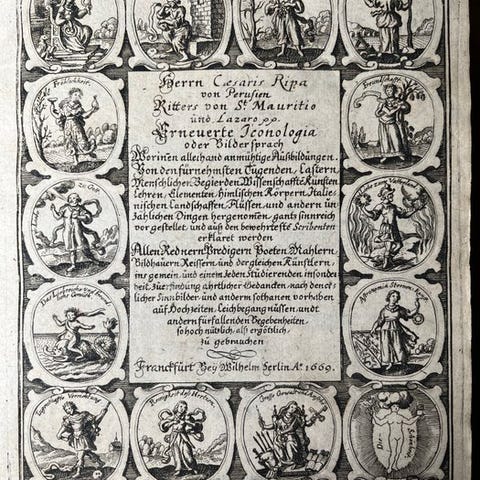 Herrn Cæsaris Ripa
von Perusien
Ritters von St. Mauritio
und Lazaro pp.
Erneuerte Iconologia
oder Bildersprach
Worinen allerhand anmühtige Außbildungen,
Von den fürnehmsten Tugenden, Lastern
Menschlichen Begierden, Wissenschafftē Künsten
Lehren, Elementen, Himlischen Körpern, Italie-
nischen Landschafften, Flüssen, und andern ūn-
zahlichen Dingen hergenom̄en, gants sinnreich
vorgestellet, und auß den bewehrteste Scribenten
erkläret werden
Allen Rednern Predigern Poeten Mahlern
Bildhauern Reissern, und dergleichen Künstlern,
ins gemein, und einem Jeden Studierenden insonder
heit, Zur erfindung ahrtlicher Gedancken, nach den etz
licher Sinnbilder, und andern sothanen vorhaben
auf Hochzeiten, Leichbegangnüssen, undt
andern fürfallenden Begebenheiten,
so hoch nützlich, als ergötzlich,
zu gebrauchen
Franckfurt Bey Wilhelm Serlin Aº. 1669.
Freundschafft
Die Schönheit